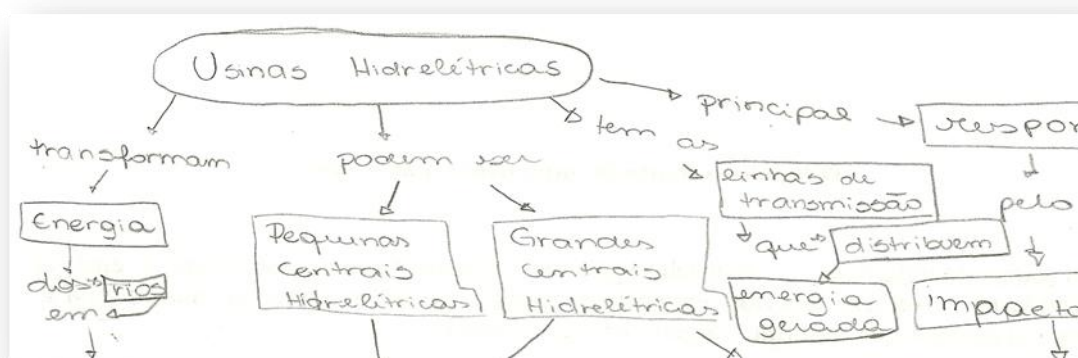 Usinas Hidrelétricas
transformam
Energia
dos rios
em
podem ser
Pequenas
Centrais
Hidrelétricas
Grandes
Centrais
Hidrelétricas
tem as
linhas de
transmissão
que distribuem
energia
gerada
principal
respon
pelo
impacto